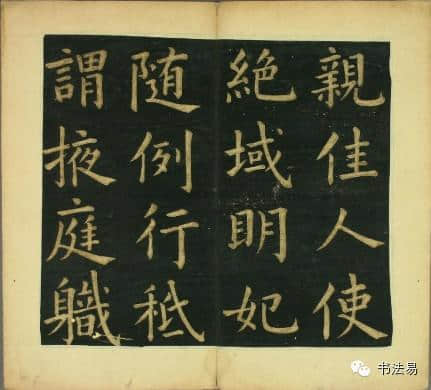 親佳人使
絕域明妃
随例行秪
謂掖庭職
书法易